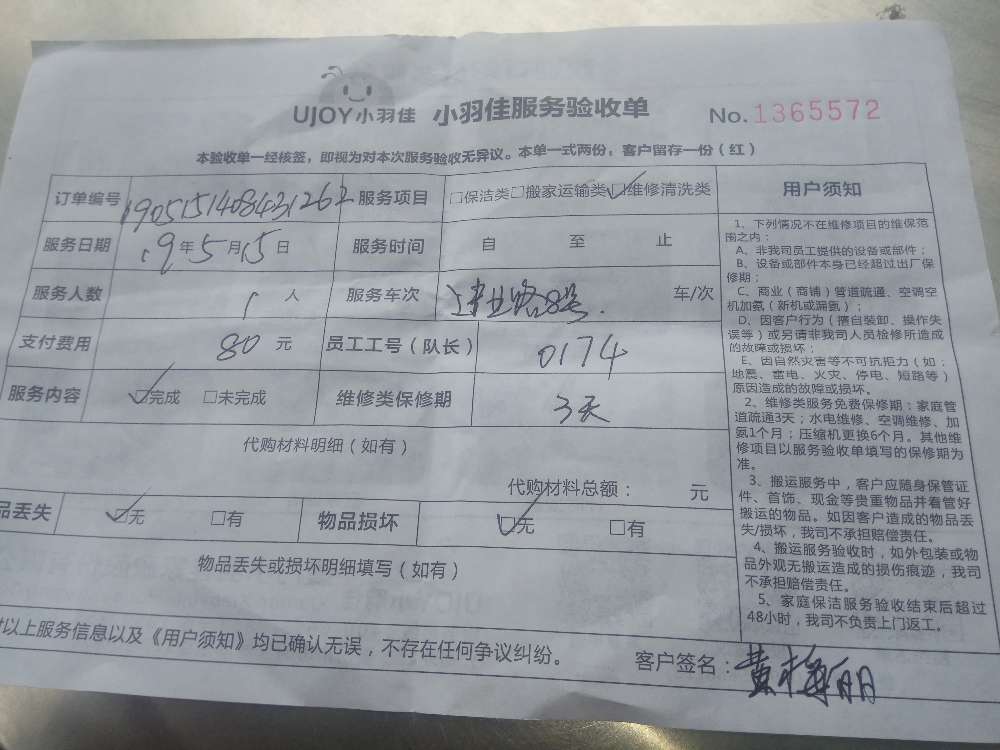 UJOY小羽佳 小羽佳服务验收单 No.1365572
本验收单一经核签，即视为对本次服务验收无异议。本单一式两份，客户留存一份（红）
订单编号 190515140843126​2 服务项目 □保洁类□搬家运输类☑维修清洗类
服务日期 19年5月15日 服务时间 自 至 止
服务人数 1人 服务车次 建业路8号. 车/次
支付费用 80元 员工工号（队长） 0174
服务内容 ☑完成 □未完成 维修类保修期 3天
代购材料明细（如有）
代购材料总额： 元
品丢失 ☑无 □有 物品损坏 ☑无 □有
物品丢失或损坏明细填写（如有）
以上服务信息以及《用户须知》均已确认无误，不存在任何争议纠纷。
客户签名：黄梅丽
用户须知
1、下列情况不在维修项目的维保范
围之内：
A、非我司员工提供的设备或部件；
B、设备或部件本身已经超过出厂保
修期；
C、商业（商铺）管道疏通、空调空
机加氨（新机或漏氨）；
D、因客户行为（擅自装卸、操作失
误等）或另请非我司人员检修所造成
的故障或损坏；
E、因自然灾害等不可抗拒力（如：
地震、雷电、火灾、停电、短路等）
原因造成的故障或损坏。
2、维修类服务免费保修期：家庭管
道疏通3天；水电维修、空调维修、加
氨1个月；压缩机更换6个月。其他维
修项目以服务验收单填写的保修期为
准。
3、搬运服务中，客户应随身保管证
件、首饰、现金等贵重物品并看管好
搬运的物品。如因客户造成的物品丢
失/损坏，我司不承担赔偿责任。
4、搬运服务验收时，如外包装或物
品外观无搬运造成的损伤痕迹，我司
不承担赔偿责任。
5、家庭保洁服务验收结束后超过
48小时，我司不负责上门返工。